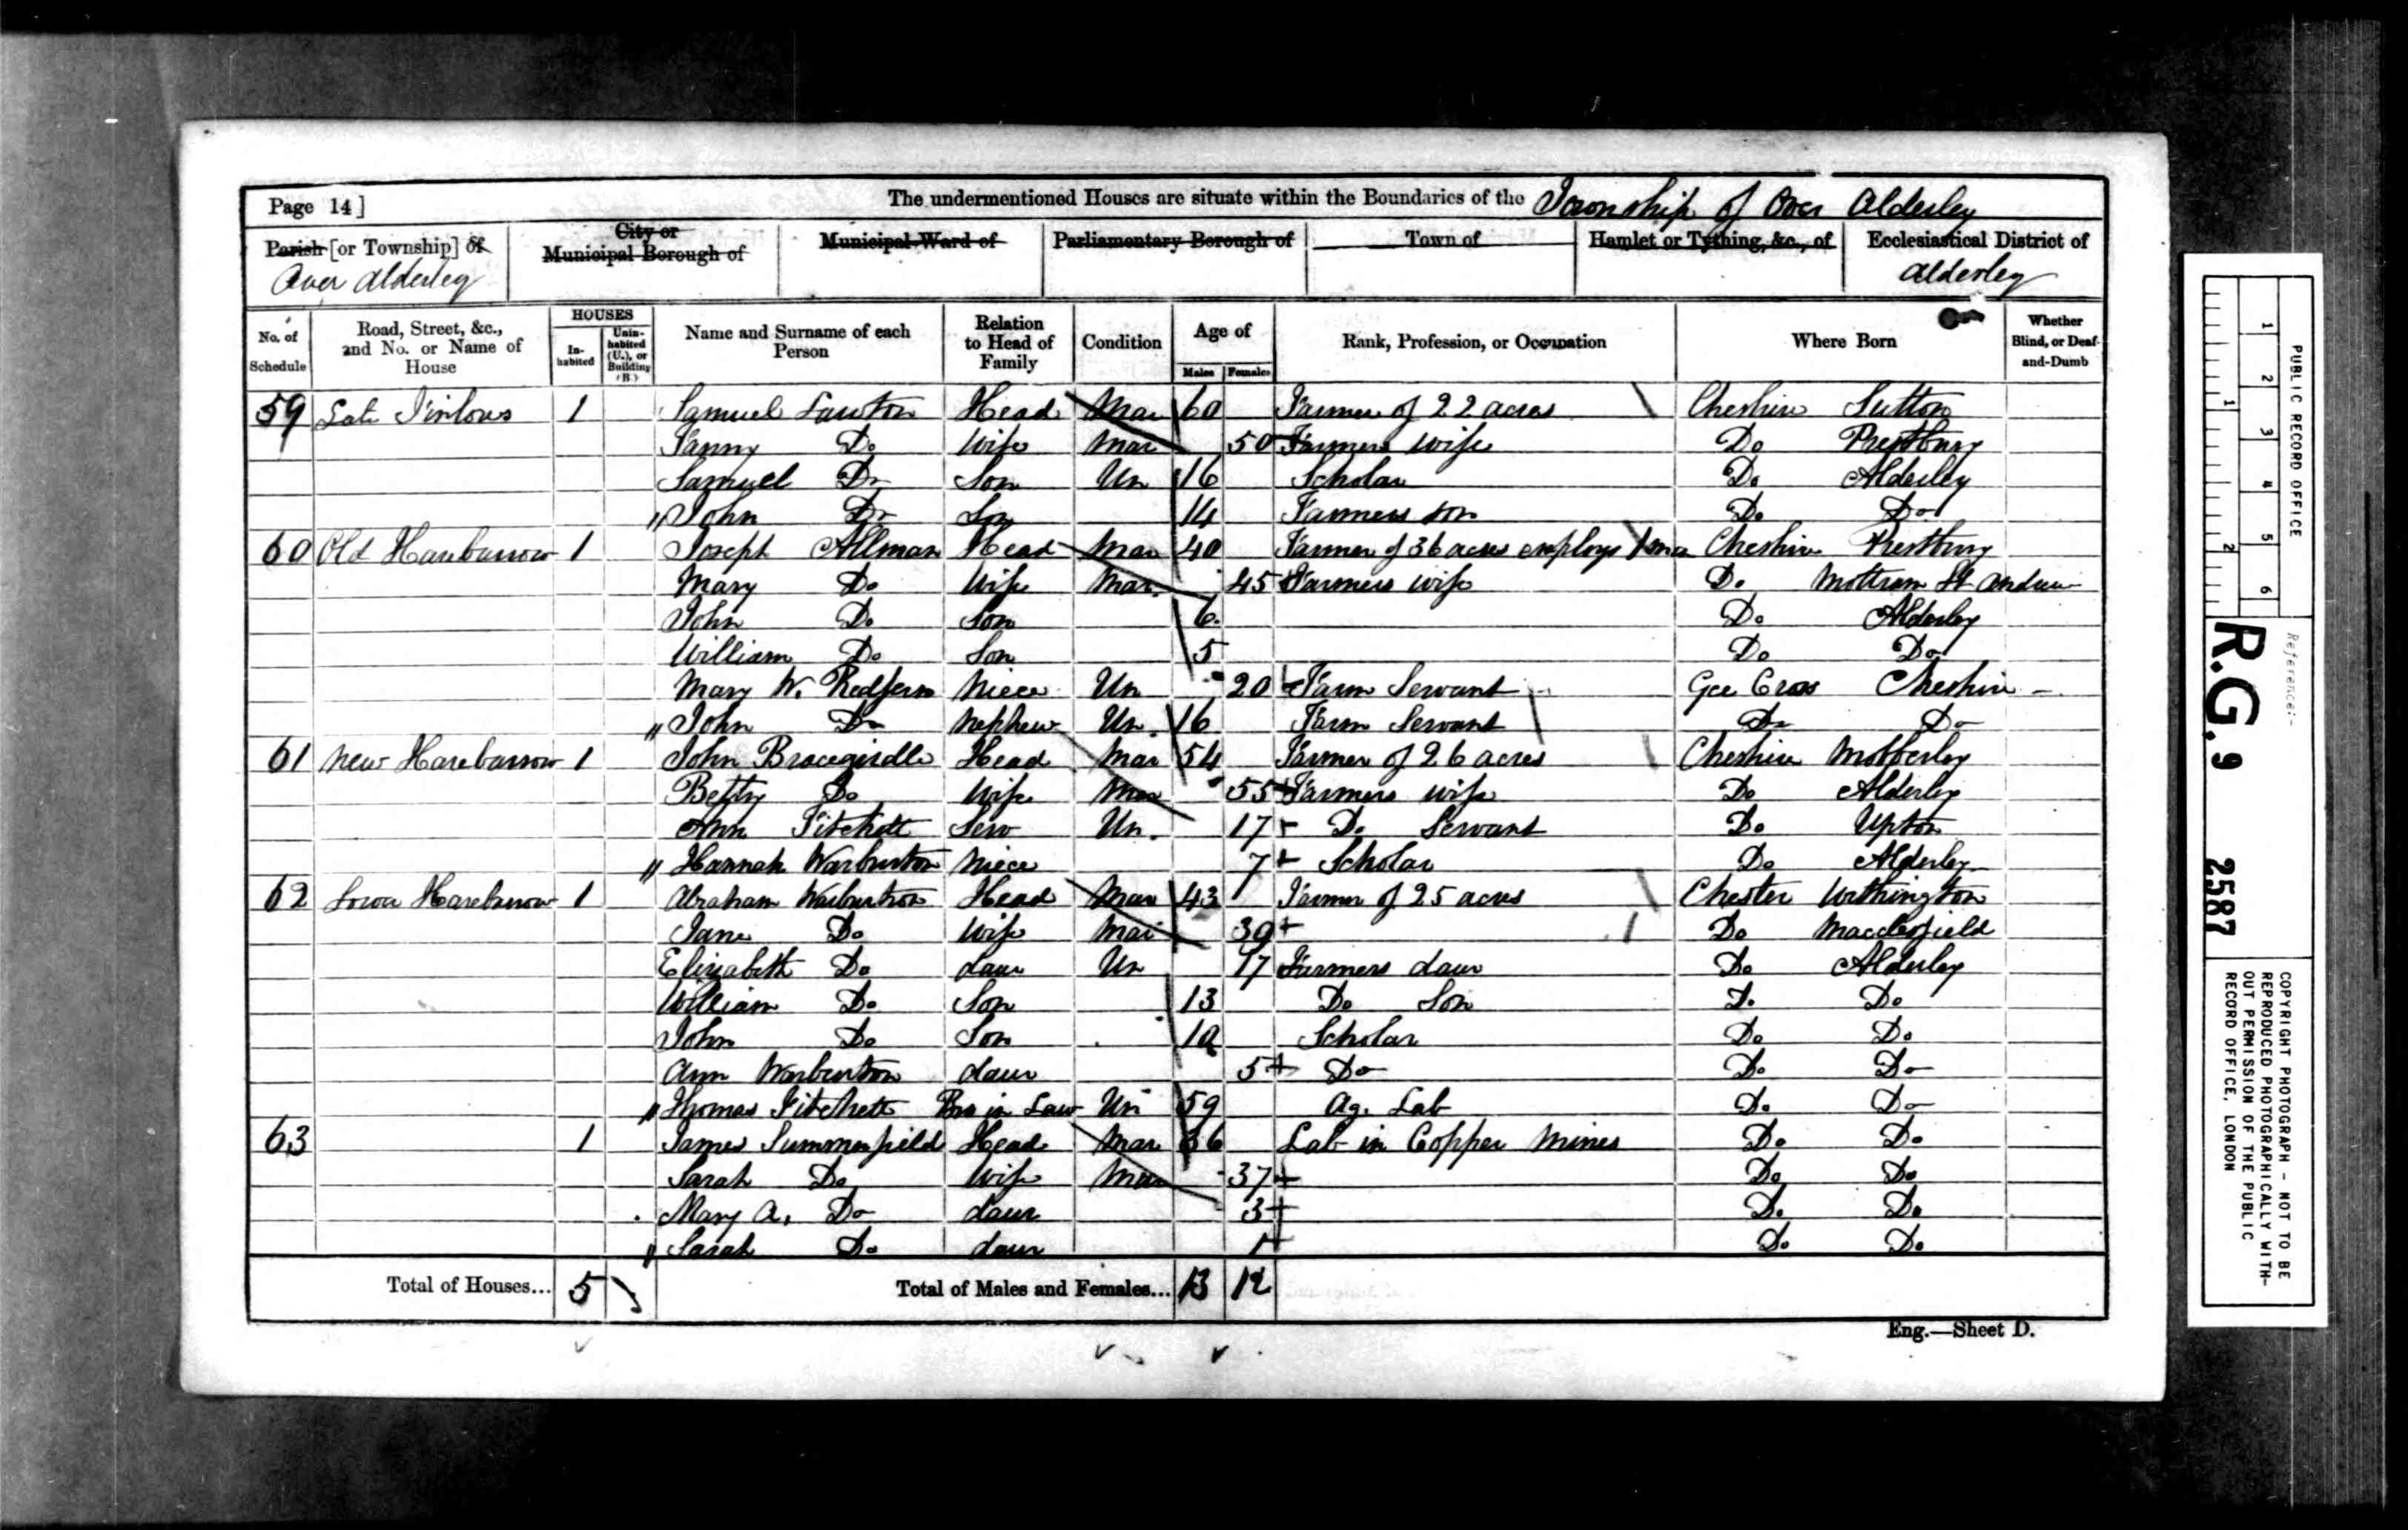 Page 14] The undermentioned Houses are situate within the Boundaries of the Township of Over Alderley
Parish [or Township] of City or Municipal Borough of Municipal Ward of Parliamentary Borough of Town of Hamlet or Tything, &c., of Ecclesiastical District of
Over Alderley Alderley
No. of Schedule Road, Street, &c., and No. or Name of House HOUSES Inhabited Uninhabited (U.), or Building (B.) Name and Surname of each Person Relation to Head of Family Condition Age of Males Females Rank, Profession, or Occupation Where Born Whether Blind, or Deaf-and-Dumb
59 Late 1 Samuel Lawton Head Mar 60 Farmer of 22 acres Cheshire Sutton
Fanny Do Wife Mar 50 Farmers wife Do Prestbury
Samuel Do Son Un 16 Scholar Do Alderley
" John Do Son 14 Farmers son Do Do
60 Old Harebarrow 1 Joseph Allman Head Mar 40 Farmer of 36 acres employs 1 ma Cheshire Prestbury
Mary Do Wife Mar. 45 Farmers wife Do Mottram St Andrew
John Do Son 6 Do Alderley
William Do Son 5 Do Do
Mary W. Redfern Niece Un 20 Farm Servant Gee Cross Cheshire
" John Do Nephew Un. 16 Farm Servant Do Do
61 New Harebarrow 1 John Bracegirdle Head Mar 54 Farmer of 26 acres Cheshire Mobberley
Betty Do Wife Mar 55 Farmers wife Do Alderley
Ann Fitchett Serv Un. 17 Do Servant Do Upton
" Hannah Warburton Niece 7 Scholar Do Alderley
62 Lower Harebarrow 1 Abraham Warburton Head Mar 43 Farmer of 25 acres Chester Withington
Jane Do Wife Mar 39 Do Macclesfield
Elizabeth Do daur Un 17 Farmers daur Do Alderley
William Do Son 13 Do Son Do Do
John Do Son 10 Scholar Do Do
Ann Warburton daur 5 Do Do Do
" Thomas Fitchett Bro in Law Un 59 Ag. Lab Do Do
63 1 James Summerfield Head Mar 36 Lab in Copper Mines Do Do
Sarah Do Wife Mar 37 Do Do
Mary A. Do daur 3 Do Do
" Sarah Do daur 1 Do Do
Total of Houses... 5 Total of Males and Females... 13 12
Eng.—Sheet D.
PUBLIC RECORD OFFICE
1 2 3 4 5 6
1 2
Reference:-
R.G. 9 2587
COPYRIGHT PHOTOGRAPH - NOT TO BE
REPRODUCED PHOTOGRAPHICALLY WITH-
OUT PERMISSION OF THE PUBLIC
RECORD OFFICE, LONDON